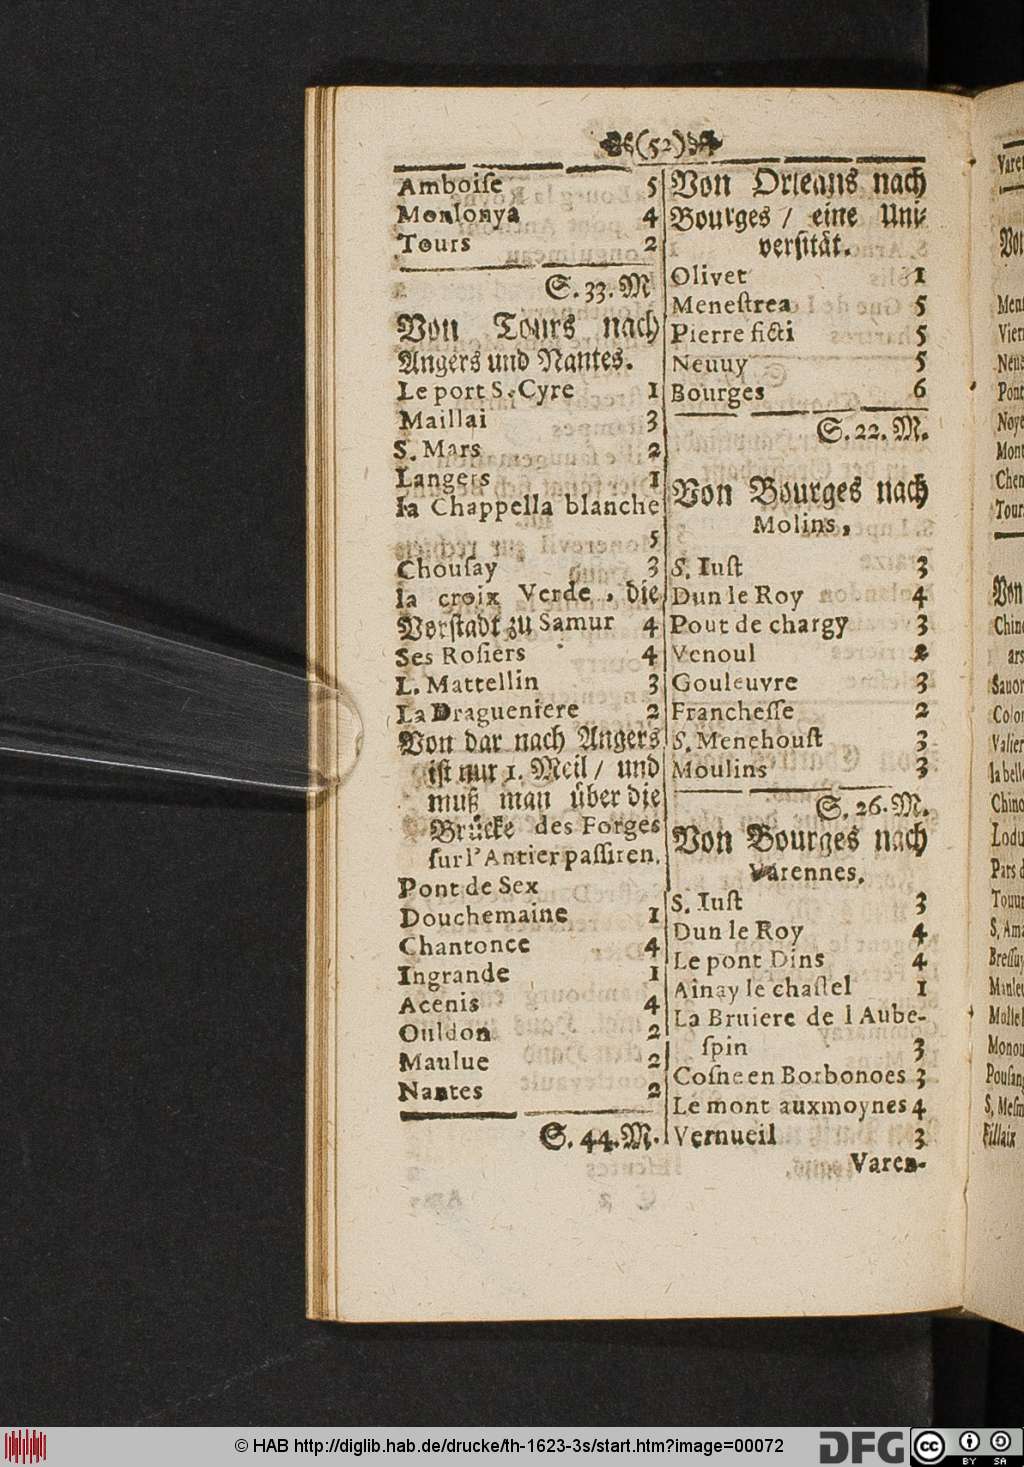 (52)
Amboiſe 5
Monlonya 4
Tours 2
S. 33. M
Von Tours nach
Angers und Nantes.
Le port S. Cyre 1
Maillai 3
S. Mars 2
Langers 1
la Chappella blanche
5
Chouſay 3
la croix Verde, die
Vorſtadt zu Samur 4
Ses Roſiers 4
L. Mattellin 3
La Dragueniere 2
Von dar nach Angers
iſt nur 1. Meil / und
muß man über die
Brücke des Forges
ſur l'Antier paſſiren.
Pont de Sex
Douchemaine 1
Chantonce 4
Ingrande 1
Acenis 4
Ouldon 2
Maulue 2
Nantes 2
S. 44. M.
Von Orleans nach
Bourges / eine Uni-
verſität.
Olivet 1
Meneſtrea 5
Pierre ficti 5
Neuuy 5
Bourges 6
S. 22. M.
Von Bourges nach
Molins,
S. Iuſt 3
Dun le Roy 4
Pout de chargy 3
Venoul 2
Gouleuvre 3
Francheſſe 2
S. Menehouſt 3
Moulins 3
S. 26. M.
Von Bourges nach
Varennes.
S. Iuſt 3
Dun le Roy 4
Le pont Dins 4
Ainay le chaſtel 1
La Bruiere de l Aube-
ſpin 3
Coſne en Borbonoes 3
Le mont auxmoynes 4
Vernueil 3
Varen-
© HAB http://diglib.hab.de/drucke/th-1623-3s/start.htm?image=00072
DFG
cc BY SA